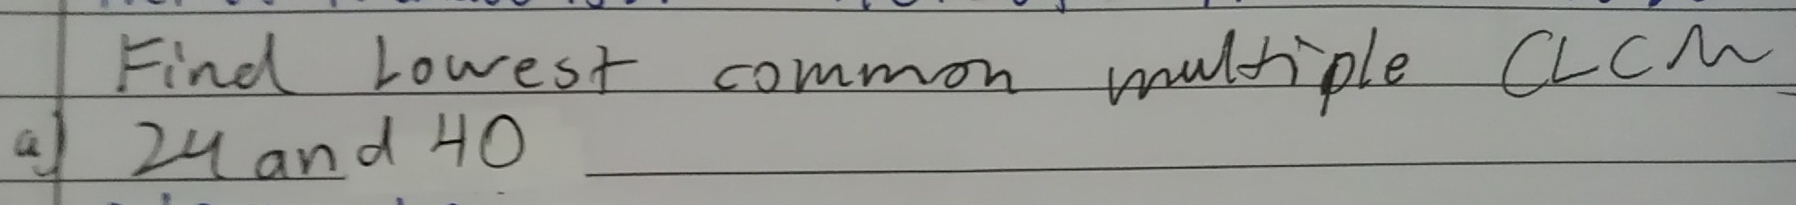 Find Lowest common multiple (LCM
a) 24 and 40